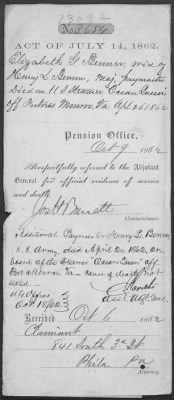 13092
No 8684
ACT OF JULY 14, 1862.
Elizabeth G Benner, wid of
Henry L. Benner, Maj, paymaster
Died on U S Steamer Ocean Queen
off Fortress Monroe, Va Apl 26 1862
Pension Office,
Oct 9 1862
Respectfully referred to the Adjutant
General for official evidence of service
and death.
Jos H Barrett
Commissioner.
Additional Paymaster Henry L. Benner
U.S. Army died April 26 1862, on
board of the Steamer "Ocean Queen" off
Fort Monroe Va - cause of death not
stated.
A.G. Office
Oct. 18/62
Asst. Adjt. Genl.
Received Oct 6 1862
Claimant
841 South 3d St
Phila Pa
Attorney.